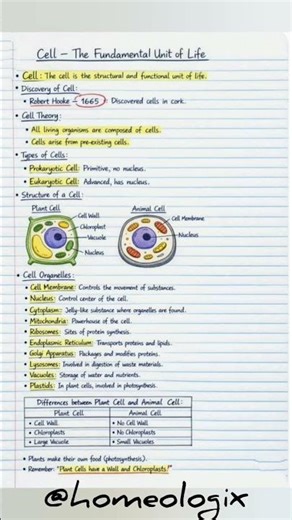 Cell – The Fundamental Unit of Life
• Cell: The cell is the structural and functional unit of life.
• Discovery of Cell:
• Robert Hooke – 1665: Discovered cells in cork.
• Cell Theory:
• All living organisms are composed of cells.
• Cells arise from pre-existing cells.
• Types of Cells:
• Prokaryotic Cell: Primitive, no nucleus.
• Eukaryotic Cell: Advanced, has nucleus.
• Structure of a Cell:
Plant Cell
Cell Wall
Chloroplast
Vacuole
Nucleus
Animal Cell
Cell Membrane
Nucleus
• Cell Organelles:
• Cell Membrane: Controls the movement of substances.
• Nucleus: Control center of the cell.
• Cytoplasm: Jelly-like substance where organelles are found.
• Mitochondria: Powerhouse of the cell.
• Ribosomes: Sites of protein synthesis.
• Endoplasmic Reticulum: Transports proteins and lipids.
• Golgi Apparatus: Packages and modifies proteins.
• Lysosomes: Involved in digestion of waste materials.
• Vacuoles: Storage of water and nutrients.
• Plastids: In plant cells, involved in photosynthesis.
Differences between Plant Cell and Animal Cell:
Plant Cell Animal Cell
• Cell Wall • No Cell Wall
• Chloroplasts • No Chloroplasts
• Large Vacuole • Small Vacuoles
• Plants make their own food (photosynthesis).
• Remember: "Plant Cells have a Wall and Chloroplasts!"
@homeologix